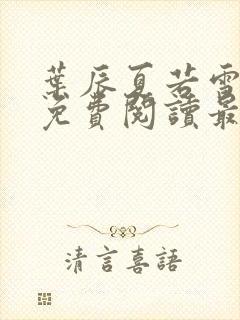 葉辰夏若雪
免費閱讀最
清言喜語